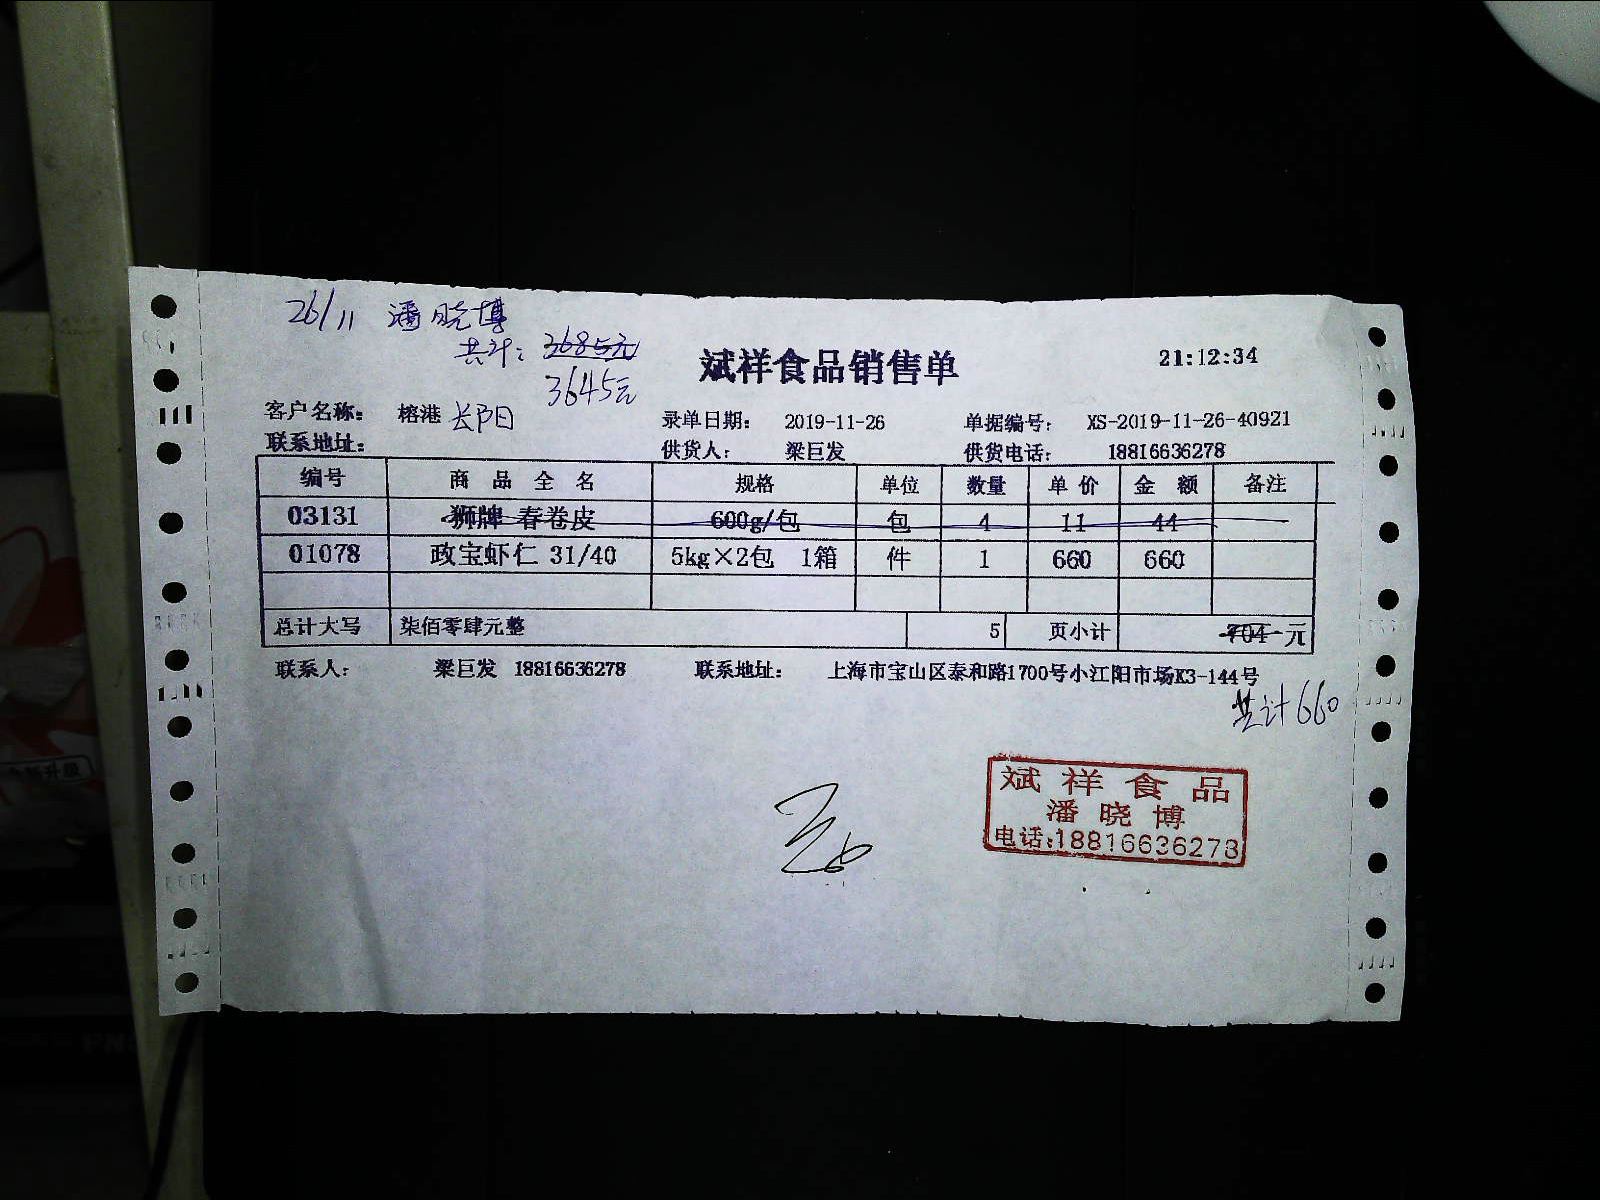 26/11 潘晓博
共计: 3685元
3645元
斌祥食品销售单 21:12:34
客户名称: 榕港 长阳 录单日期: 2019-11-26 单据编号: XS-2019-11-26-40921
联系地址: 供货人: 梁巨发 供货电话: 18816636278
编号 商品全名 规格 单位 数量 单价 金额 备注
03131 狮牌 春卷皮 600g/包 包 4 11 44
01078 政宝虾仁 31/40 5kg×2包 1箱 件 1 660 660
总计大写 柒佰零肆元整 5 页小计 704 元
联系人: 梁巨发 18816636278 联系地址: 上海市宝山区泰和路1700号小江阳市场K3-144号
共计660
斌祥食品
潘晓博
电话:18816636278